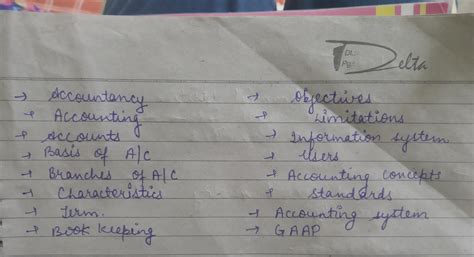 Dt.
Pg.
Delta
→ Accountancy
→ Accounting
→ Accounts
→ Basis of A/C
→ Branches of A/C
→ Characteristics
→ Term.
→ Book Keeping
→ Objectives
→ Limitations
→ Information system
→ Users
→ Accounting concepts
→ Standards
→ Accounting system
→ GAAP